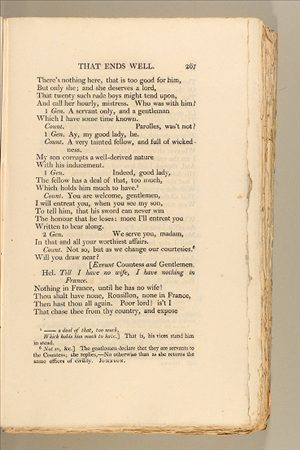 THAT ENDS WELL. 267
There's nothing here, that is too good for him,
But only she; and she deserves a lord,
That twenty such rude boys might tend upon,
And call her hourly, mistress. Who was with him?
1 Gen. A servant only, and a gentleman
Which I have some time known.
Count. Parolles, was't not?
1 Gen. Ay, my good lady, he.
Count. A very tainted fellow, and full of wicked-
ness.
My son corrupts a well-derived nature
With his inducement.
1 Gen. Indeed, good lady,
The fellow has a deal of that, too much,
Which holds him much to have.⁵
Count. You are welcome, gentlemen,
I will entreat you, when you see my son,
To tell him, that his sword can never win
The honour that he loses: more I'll entreat you
Written to bear along.
2 Gen. We serve you, madam,
In that and all your worthiest affairs.
Count. Not so, but as we change our courtesies.⁶
Will you draw near?
[Exeunt Countess and Gentlemen.
Hel. Till I have no wife, I have nothing in
France.
Nothing in France, until he has no wife!
Thou shalt have none, Rousillon, none in France,
Then hast thou all again. Poor lord! is't I
That chase thee from thy country, and expose
⁵ —— a deal of that, too much,
Which holds him much to have.] That is, his vices stand him
in stead.
⁶ Not so, &c.] The gentlemen declare that they are servants to
the Countess; she replies,—No otherwise than as she returns the
same offices of civility. JOHNSON.